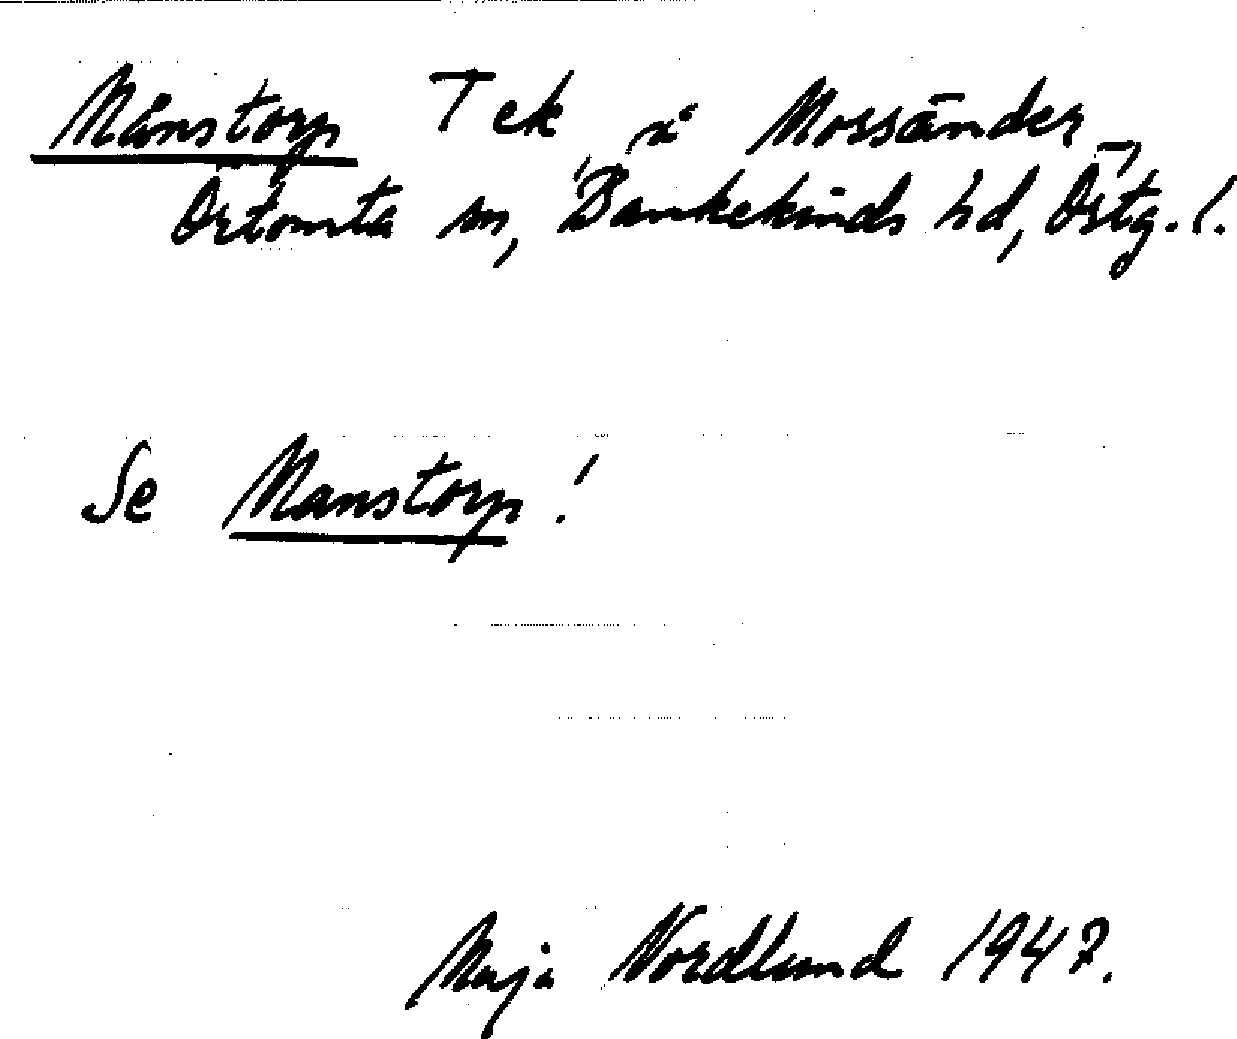 Månstorp Tek i Mossänder,
Örtomta sn, Bankekinds hd, Östg. l.
Se Manstorp!
Maja Nordlund 1947.